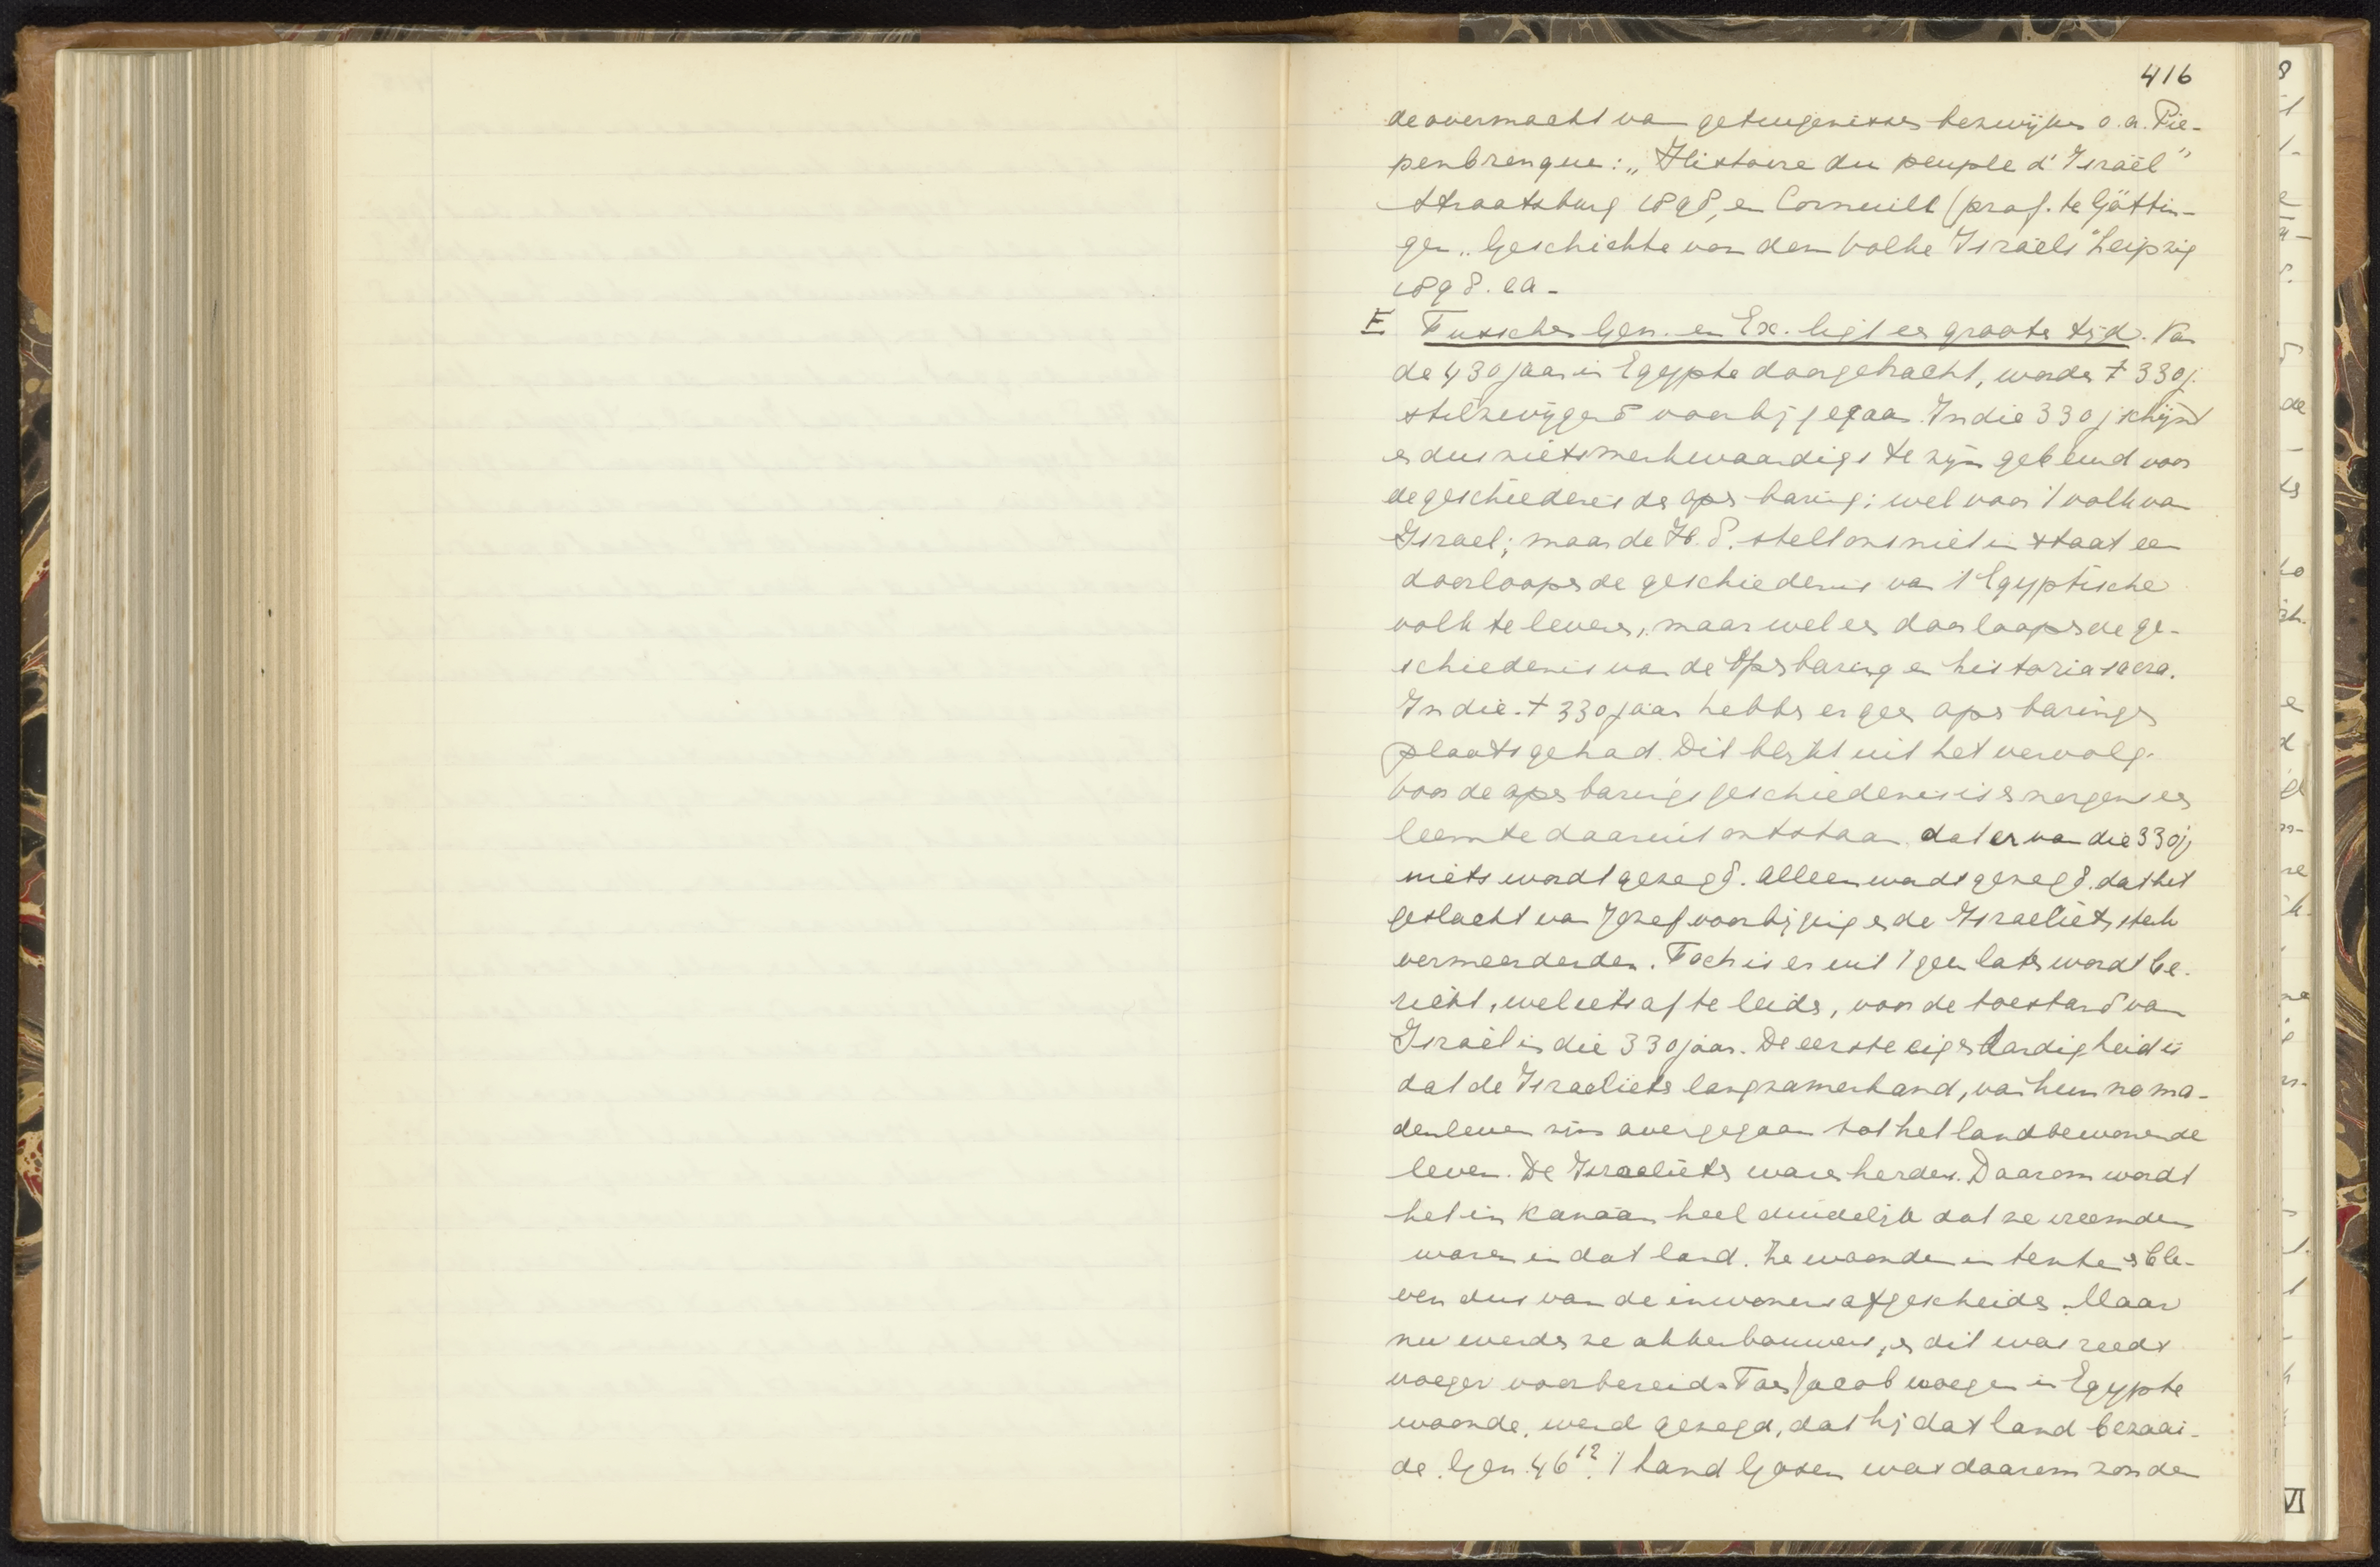 416
de overmacht van getuigenissen bezwijken o.a. Pie-
penbrenque: „Histoire du peuple d'Israël"
Straatsburg 1898, en Cornuill (prof. te Göttin-
gen „Geschichte von dem Volke Israëls" Leipzig
1898. ea -
E Tusschen Gen. en Ex. ligt een groote tijd. Van
de 430 jaar in Egypte doorgebracht, worden ± 330 j.
stilzwijgend voorbij gegaan. In die 330 j schijnt
er dus niets merkwaardigs te zijn gebeurd voor
de geschiedenis der openbaring; wel voor 't volk van
Israel; maar de H.S. stelt ons niet in staat een
doorloopende geschiedenis van 't Egyptische
volk te leveren, maar wel een doorloopende ge-
schiedenis van de Openbaring en historia sacra.
In die ± 330 jaar hebben er geen openbaringen
plaats gehad. Dit blijkt uit het vervolg.
Voor de openbaringsgeschiedenis is er nergens een
leemte daaruit ontstaan dat er van die 330 j
niets wordt gezegd. Alleen wordt gezegd, dat het
geslacht van Jozef voorbij ging en de Israelieten sterk
vermeerderden. Toch is er uit 't geen later wordt be-
richt, wel iets af te leiden, voor de toestand van
Israël in die 330 jaar. De eerste eigenaardigheid is
dat de Israelieten langzamerhand, van hun noma-
denleven zijn overgegaan tot het landbewonende
leven. De Israelieten waren herders. Daarom wordt
het in Kanaän heel duidelijk dat ze vreemden
waren in dat land. Ze woonden in tenten en ble-
ven dus van de inwoners afgescheiden. Maar
nu werden ze akkerbouwers, en dit was reeds
vroeger voorbereid. Toen Jacob vroeger in Egypte
woonde, werd gezegd, dat hij dat land bezaai-
de. Gen. 46 12. 't Land Gosen was daarom zonder
VI